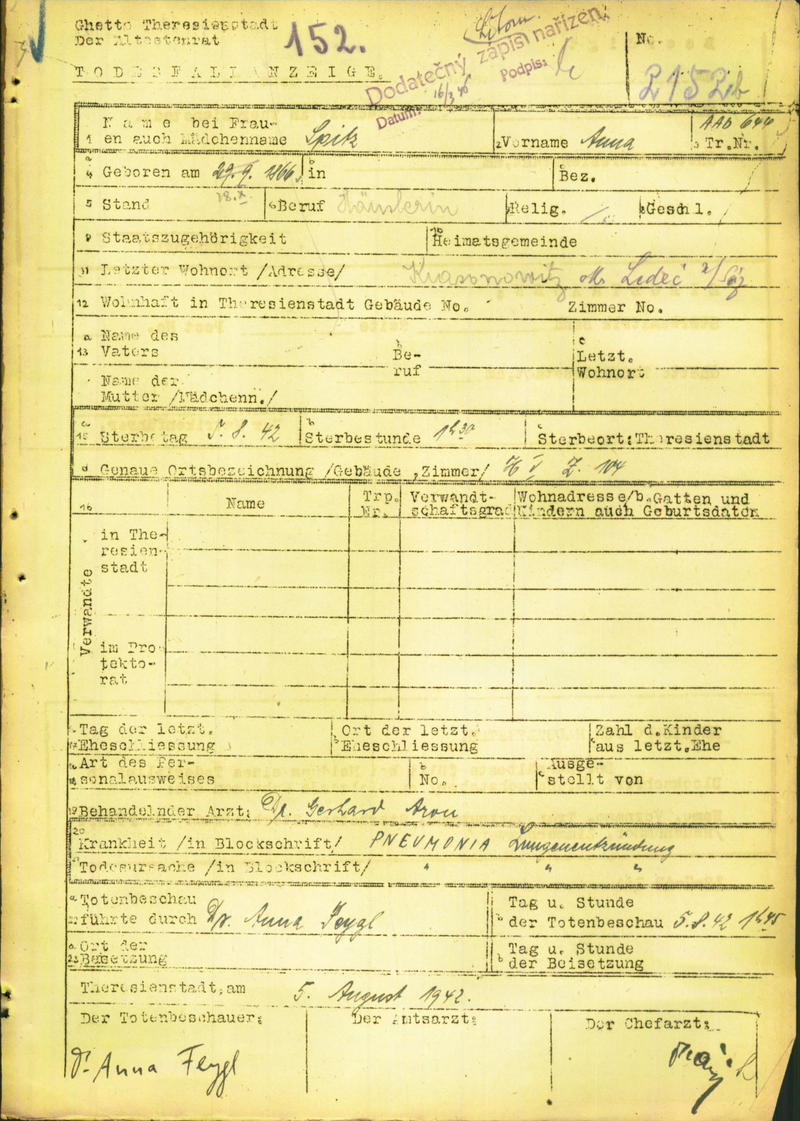 Ghetto Theresienstadt
Der Ältestenrat
152.
No.
TODESFALLANZEIGE.
Dodatečný zápis nařízen:
Podpis:
Datum: 16/3 48
2152b
1 Name bei Frau-
en auch Mädchenname Spitz
2 Vorname Anna
3 Tr.Nr. AAO 644
a
4 Geboren am 29.9. 1866
b in
c Bez.
28.X
5 Stand
6 Beruf Händlerin
7 Relig.
8 Geschl.
9 Staatszugehörigkeit
10 Heimatsgemeinde
11 Letzter Wohnort /Adresse/ Krasonowitz Ledeč
12 Wohnhaft in Theresienstadt Gebäude No. Zimmer No.
a Name des
13 Vaters
b Be-
ruf
c Letzt.
Wohnort
Name der
Mutter /Mädchenn./
a
15 Sterbetag 5.8.42
b Sterbestunde 1h30
c Sterbeort: Theresienstadt
d Genaue Ortsbezeichnung /Gebäude ,Zimmer/
16
Name
Trp.
Nr.
Verwandt-
schaftsgrad
Wohnadresse/b.Gatten und
Kindern auch Geburtsdaten
Verwandte
in The-
resien-
stadt
im Pro-
tekto-
rat
Tag der letzt.
Eheschliessung
Ort der letzt.
Eheschliessung
Zahl d.Kinder
aus letzt.Ehe
Art des Per-
sonalausweises
b
No.
Ausge-
stellt von
19 Behandelnder Arzt: Dr. Gerhard Aron
20
Krankheit /in Blockschrift/ PNEUMONIA Lungenentzündung
Todesursache /in Blockschrift/ " " "
a Totenbeschau
führte durch Dr. Anna Feygl
Tag u. Stunde
b der Totenbeschau 5.8.42 1h45
a Ort der
Beisetzung
Tag u. Stunde
b der Beisetzung
Theresienstadt, am 5. August 1942.
Der Totenbeschauer:
Der Amtsarzt:
Der Chefarzt:
Dr. Anna Feygl